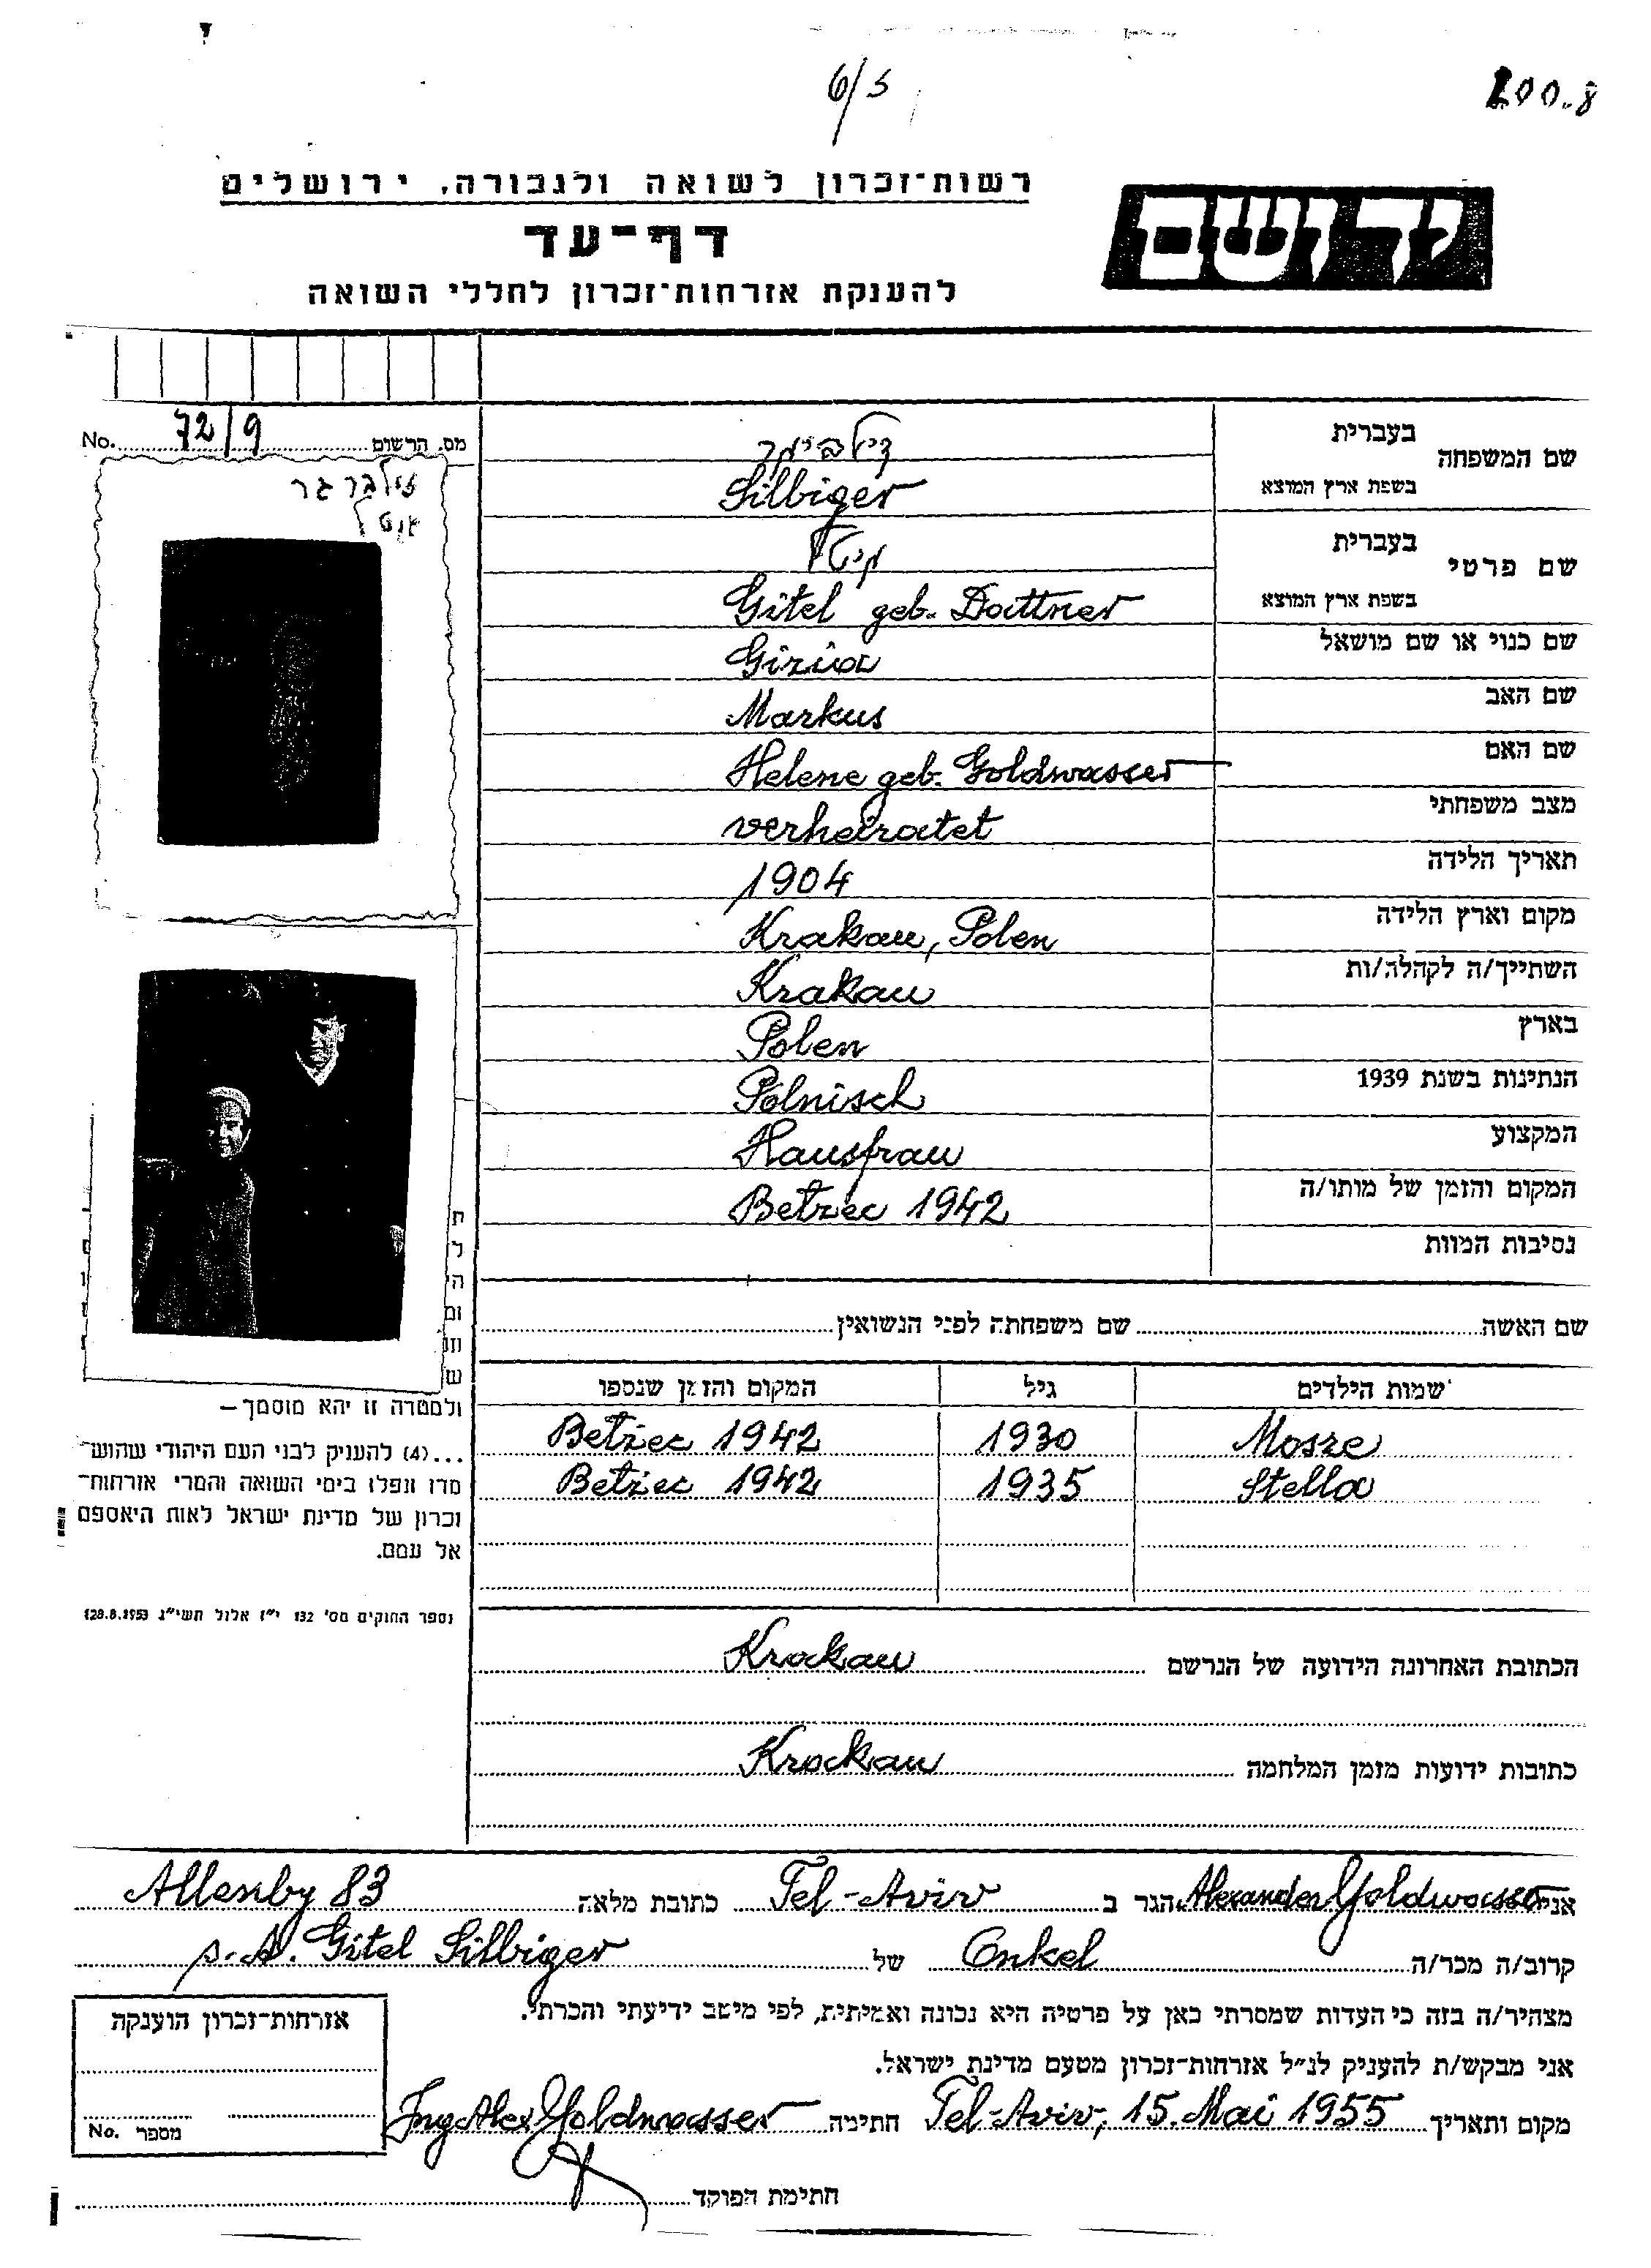 6/5
200.8
רשות־זכרון לשואה ולגבורה, ירושלים
יד ושם
דף־עד
להענקת אזרחות־זכרון לחללי השואה
מס. הרשום 72/9 No.
זילברגר
שם המשפחה
בעברית
בשפת ארץ המוצא Silbiger
שם פרטי
בעברית גיטל
בשפת ארץ המוצא Gitel geb. Dattner
שם כנוי או שם מושאל Gizúa
שם האב Markus
שם האם Helene geb. Goldwasser
מצב משפחתי verheiratet
תאריך הלידה 1904
מקום וארץ הלידה Krakau, Polen
השתייך/ה לקהלה/ות Krakau
בארץ Polen
הנתינות בשנת 1939 Polnisch
המקצוע Hausfrau
המקום והזמן של מותו/ה Betzec 1942
נסיבות המוות
שם האשה שם משפחתה לפני הנשואין
שמות הילדים גיל המקום והזמן שנספו
Mosze 1930 Betzec 1942
Stella 1935 Betzec 1942
ולמטרה זו יהא מוסמך –
...(4) להעניק לבני העם היהודי שהוש־
מדו ונפלו בימי השואה והמרי אזרחות־
זכרון של מדינת ישראל לאות היאספם
אל עמם.
(ספר החוקים מס' 132 י"ז אלול תשי"ג 28.8.1953)
הכתובת האחרונה הידועה של הנרשם Krakau
כתובות ידועות מזמן המלחמה Krackau
אני Alexander Goldwasser הגר ב Tel-Aviv כתובת מלאה Allenby 83
קרוב/ה מכר/ה Onkel של p. A. Gitel Silbiger
מצהיר/ה בזה כי העדות שמסרתי כאן על פרטיה היא נכונה ואמיתית, לפי מיטב ידיעתי והכרתי.
אני מבקש/ת להעניק לנ״ל אזרחות־זכרון מטעם מדינת ישראל.
מקום ותאריך Tel-Aviv, 15. Mai 1955 חתימה Ing Alex Goldwasser
חתימת הפוקד
אזרחות־זכרון הוענקה
מספר No.